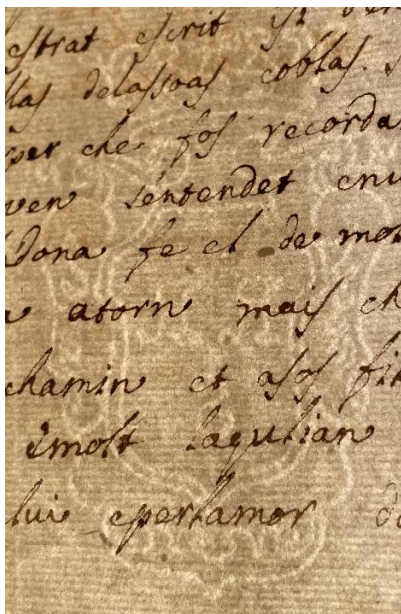 strat escrit si
las delassoas coblas.
per che fos recorda
ven sentendet env
Dona fe el de mol
a atorn mais ch
chamin et asos fi
emolt laqulian
lui eperlamor d